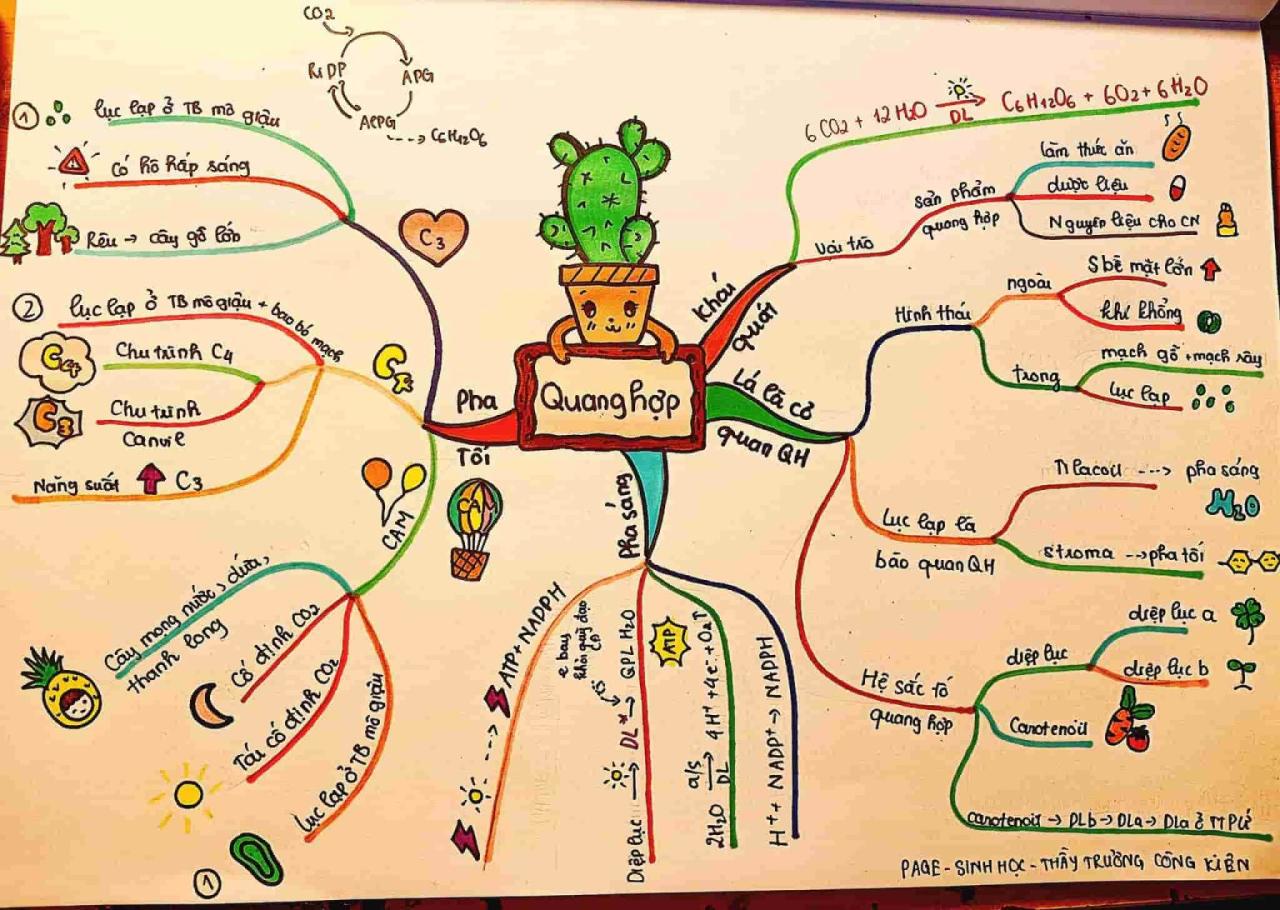 Quang hợp
Khái quát
6CO2 + 12H2O DL C6H12O6 + 6O2 + 6H2O
Vai trò
sản phẩm
quang hợp
làm thức ăn
dược liệu
Nguyên liệu cho CN
Lá là cơ
quan QH
Hình thái
ngoài
S bề mặt lớn
khí khổng
trong
mạch gỗ + mạch rây
lục lạp
Lục lạp là
bào quan QH
Tilacoit ---> pha sáng
H2O
stroma --> pha tối
Hệ sắc tố
quang hợp
diệp lục
diệp lục a
diệp lục b
Carotenoit
carotenoit → DLb → DLa → DLa ở TTPƯ
Pha sáng
ATP + NADPH
Diệp lục → DL* → QPL H2O
e bay
khỏi quỹ đạo
ATP
2H2O a/s DL 4H+ + 4e- + O2↑
H+ + NADP+ → NADPH
Pha
Tối
C3
CO2
RiDP
APG
AlPG
---> C6H12O6
① lục lạp ở TB mô giậu
Có hô hấp sáng
Rêu → cây gỗ lớn
C4
② lục lạp ở TB mô giậu + bao bó mạch
C4
Chu trình C4
C3
Chu trình
Canvil
Năng suất C3
CAM
CAM
Cây mọng nước, dứa,
thanh long
Cố định CO2
Tái cố định CO2
lục lạp ở TB mô giậu
①
PAGE - SINH HỌC - THẦY TRƯƠNG CÔNG KIÊN